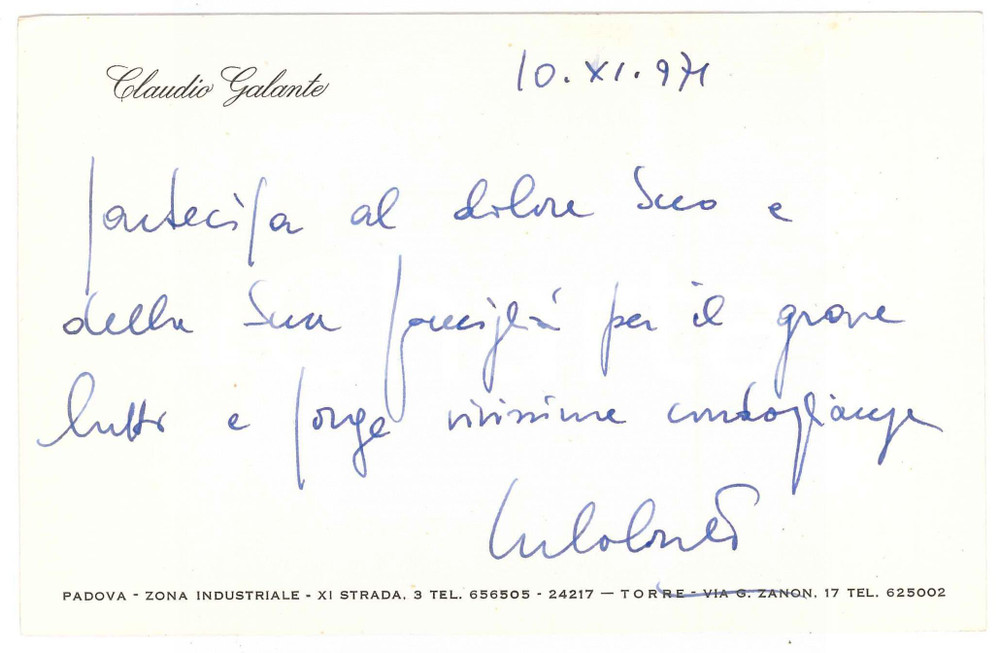 Claudio Galante
10.XI.971
partecipa al dolore Suo e
della Sua famiglia per il grave
lutto e porge vivissime condoglianze
PADOVA - ZONA INDUSTRIALE - XI STRADA. 3 TEL. 656505 - 24217 — TORRE - VIA G. ZANON. 17 TEL. 625002